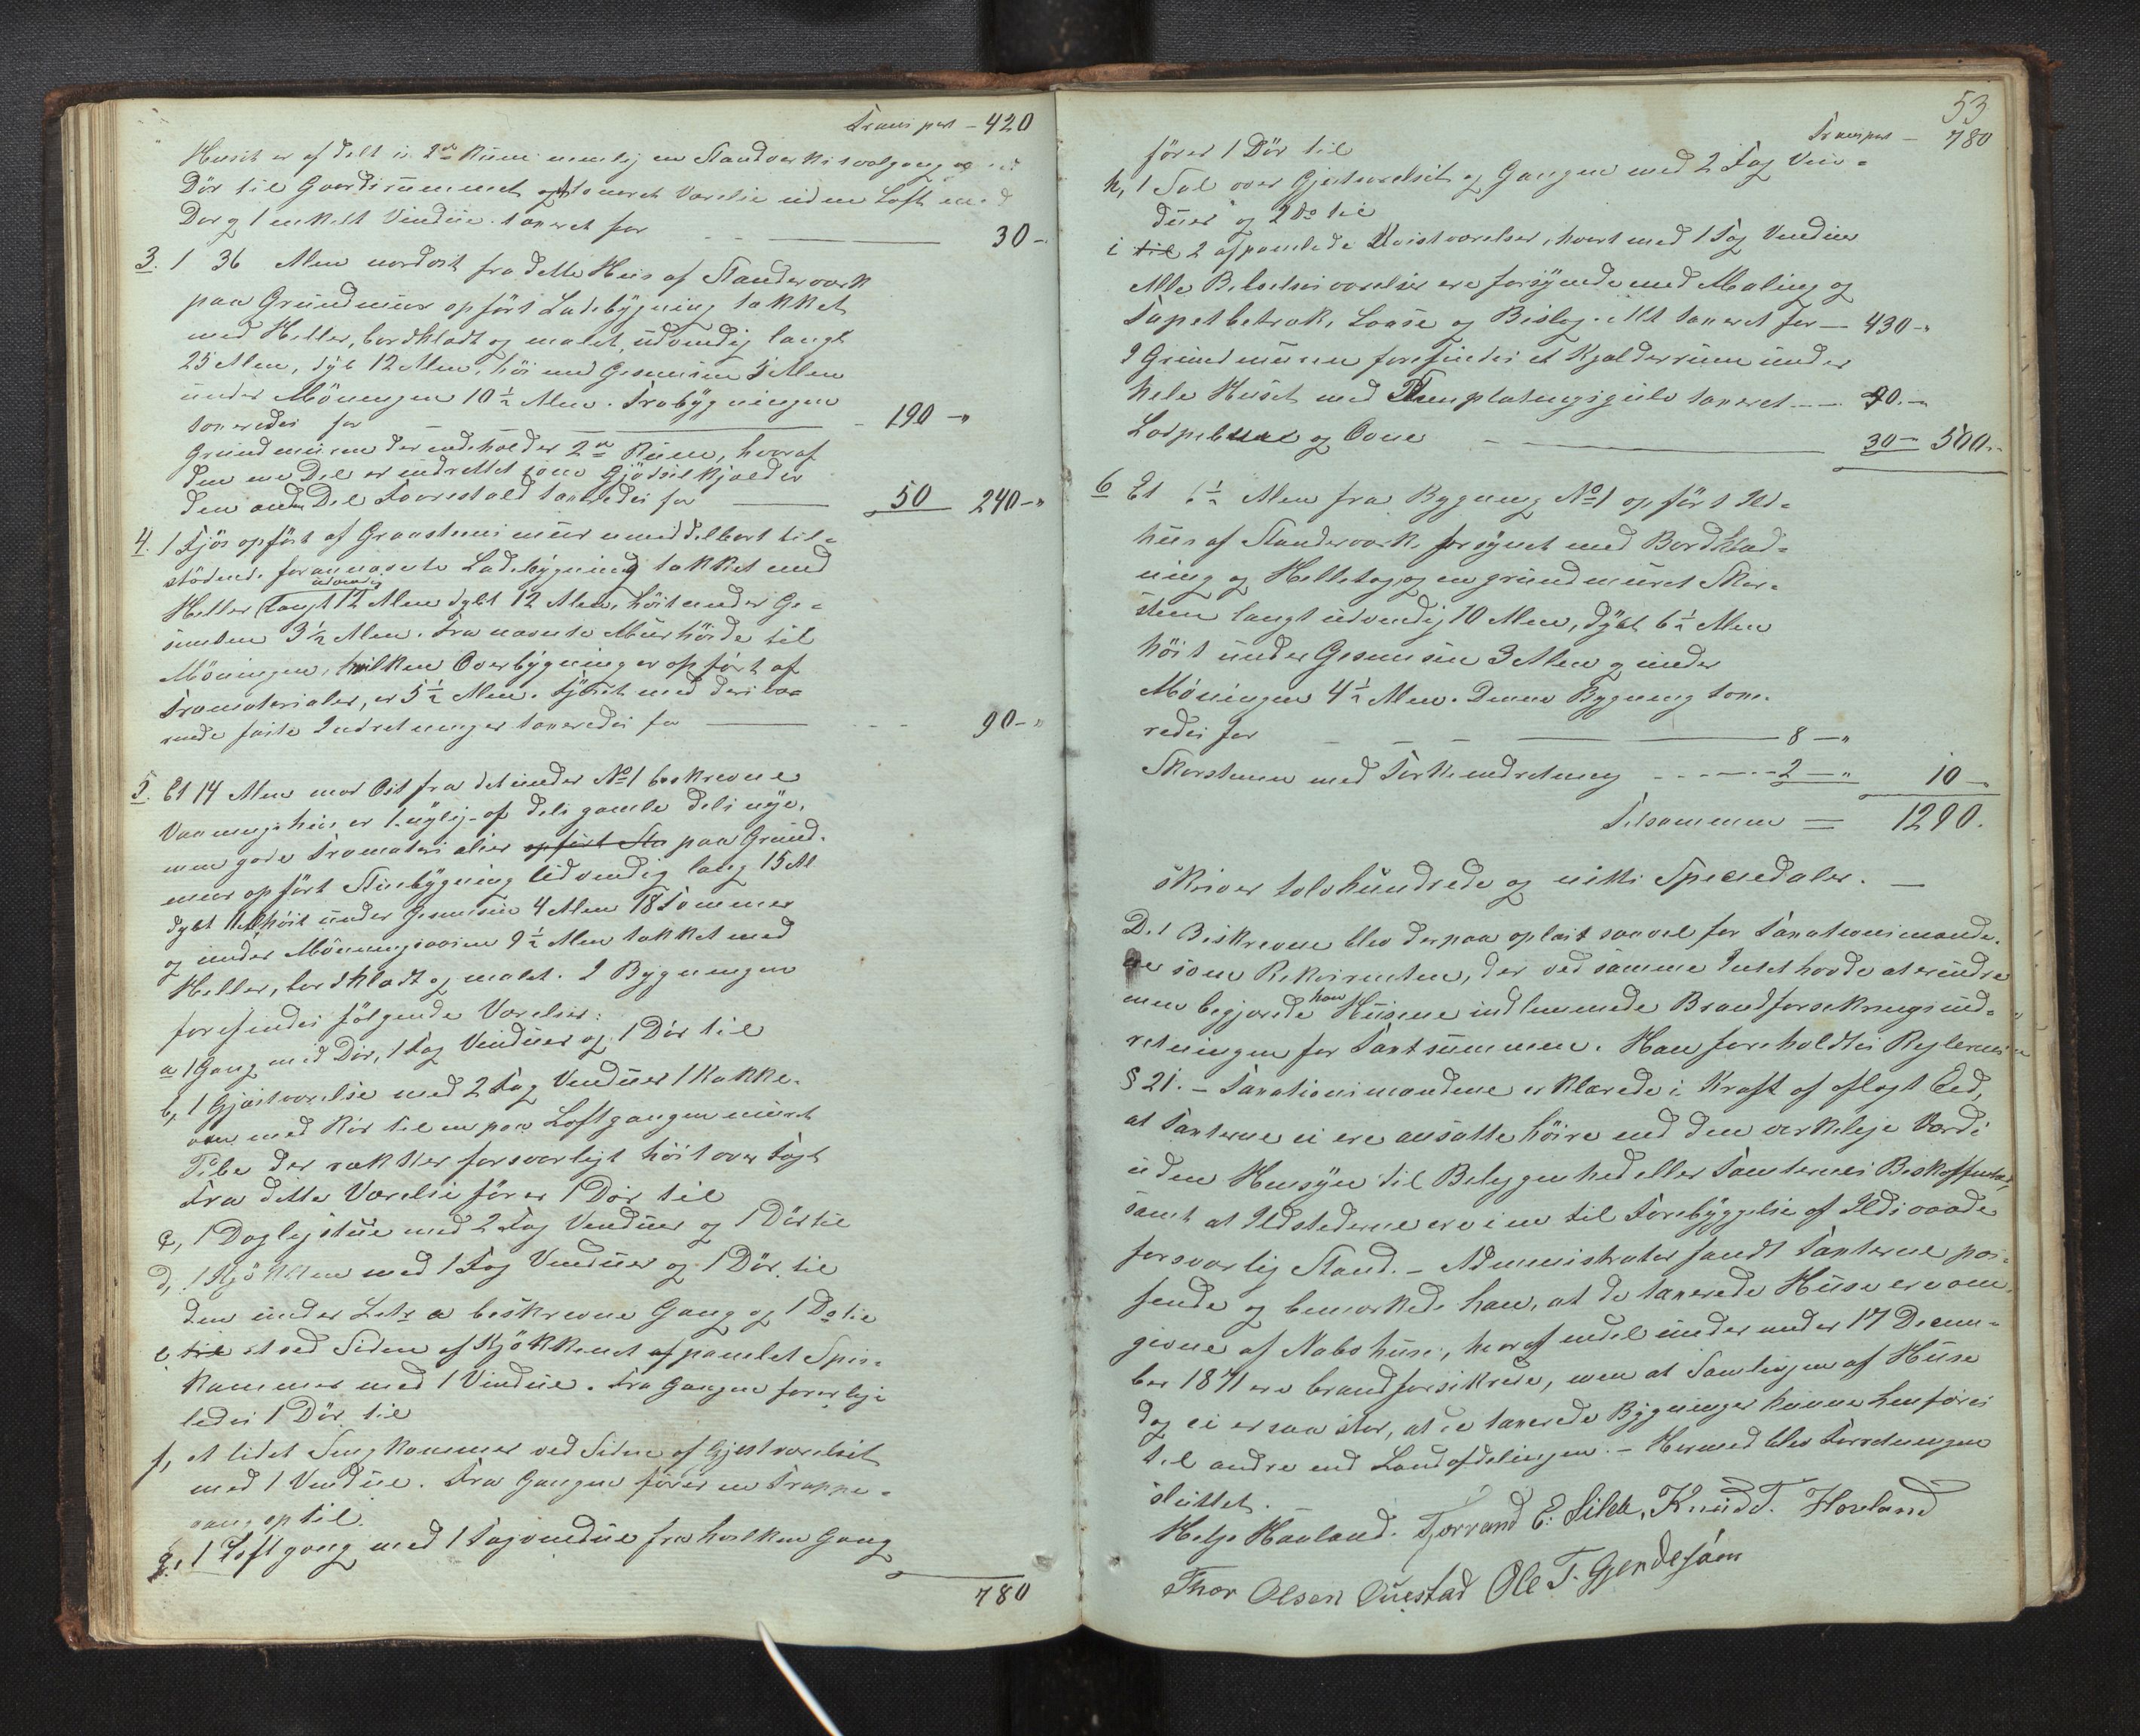 Transport - 420
Huset er afdelt i 2de Rum nemlig en Standverks svalgang og
Dör til Gaardsrummet og tömret Værelse uden Loft med
Dør og 1 enkelt Vindue taxeret for 30 -
3. 1 36 Alen nordost fra dette Huus af Standerværk
paa Grundmuur opført Ladebygning takket
med Heller, bordklædt og malet, udvendig langt
25 Alen, dyb 12 Alen, höi med Gesimsen 5 Alen
under Möningen 10½ Alen. Træbygningen
taxeredes for 190 -"
Grundmuren der indeholder 2de Rum, hvoraf
den ene Del er indrettet som Gjödselkjælder
den anden Del Faarestald taxeredes for 50 240 -"
4. 1 Fjös opfört af Graasteensmuur umiddelbart til-
stödende forannævnte Ladebygning takket med
udvendig
Heller langt 12 Alen dybt 12 Alen, höit under Ge-
simsen 3½ Alen. Fra nævnte Muurhöide til
Möningen, hvilken Overbygning er opfört af
Træmaterialer, er 5½ Alen. Fjöset med deri væ-
rende faste Indretninger taxeredes for 90 -"
5. Et 14 Alen mod Ost fra det under No 1 beskrevne
Vaaningshuus er 1 nylig af dels gamle dels nye,
men gode Træmaterialier opfört paa Grund-
muur opfört Stuebygning udvendig lang 15 Al
dybt 11 Al, höit under Gesimsen 4 Alen 18 Tommer
og under Möningsaasen 9½ Alen takket med
Heller, bordklædt og malet. I Bygningen
forefindes fölgende Værelser:
a 1 Gang med Dör, 1 Fag Vinduer og 1 Dör til
b, 1 Gjæstværelse med 2 Fag Vinduer 1 Kakke-
ovn med Rör til en paa Loftgangen muret
Pibe der rækker forsvarligt höit over Taget
Fra dette Værelse förer 1 Dör til
c, 1 Dagligstue med 2 Fag Vinduer og 1 Dör til
d, 1 Kjökken med 1 Fag Vinduer og 1 Dör til
den under Letr a beskrevne Gang og 1 Do til
e til et ved Siden af Kjökkenet afpanelet Spis-
kammer med 1 Vindue. Fra Gangen förer lige-
ledes 1 Dör til
f, et lidet Sengkammer ved Siden af Gjestværelset
med 1 Vindue. Fra Gangen förer en Trappe-
gang op til
g, 1 Loftgang med 1 Tagvindue fra hvilken Gang
780
53
Transport - 780
förer 1 Dör til
h, 1 Sal over Gjestværelset og Gangen med 2 Fag Vin-
duer og 2 Do til
i til 2 afpanelede Kvistværelser, hvert med 1 Fag Vinduer
Alle Beboelsesværelser ere forsynede med Maling og
Tapetbetræk, Laase og Beslag. Alt taxeret for 430 -"
I Grundmuren forefindes et Kjælderrum under
hele Huset med gulv taxeret 40 -"
og Ovne 30 - 500 -"
6 Et 6½ Alen fra Bygning No 1 opfört Ild-
huus af Standerværk forsynet med Bordklæd-
ning og Helletag, og en grundmuret Skor-
steen langt udvendig 10 Alen, dybt 6½ Alen
höit under Gesimsen 3 Alen og under
Möningen 4½ Alen. Denne Bygning taxe-
redes for 8 -"
Skorstenen med Törkeindretning 2 -" 10 -
Tilsammen = 1290.
skriver tolvhundrede og nitti Speciedaler. -
Det Beskrevne blev derpaa oplæst saavel for Taxationsmænde-
ne som Rekvirenten, der ved samme Intet havde at erindre
han
men begjærede Husene indlemmede Brandforsikringsind-
retningen for Taxtsummen. Han foreholdtes Reglernes
§ 21. - Taxationsmændene erklærede i Kraft af aflagt Eed,
at Taxterne ei ere ansatte höire end den virkelige Værdi
uden Hensyn til Beleggenhed eller Tomternes Beskaffenhed,
samt at Ildstederne ere i en til Forebyggelse af Ildsvaade
forsvarlig Stand. - Administrator fandt Taxterne pas-
sende og bemærkede han, at de taxerede Huse ere om-
givne af Nabohuse, hvoraf endel under 17 Decem-
ber 1871 ere brandforsikrede, men at Samlingen af Huse
dog ei er saa stor, at de taxerede Bygninger kunne henföres
til andre end Landafdelingen. - Hermed blev Forretningen
sluttet.
Helge Havland. Torrand E. Lilda, Knud T. Haveland
Thor Olsen Questad Ole T. Gjendesjöen